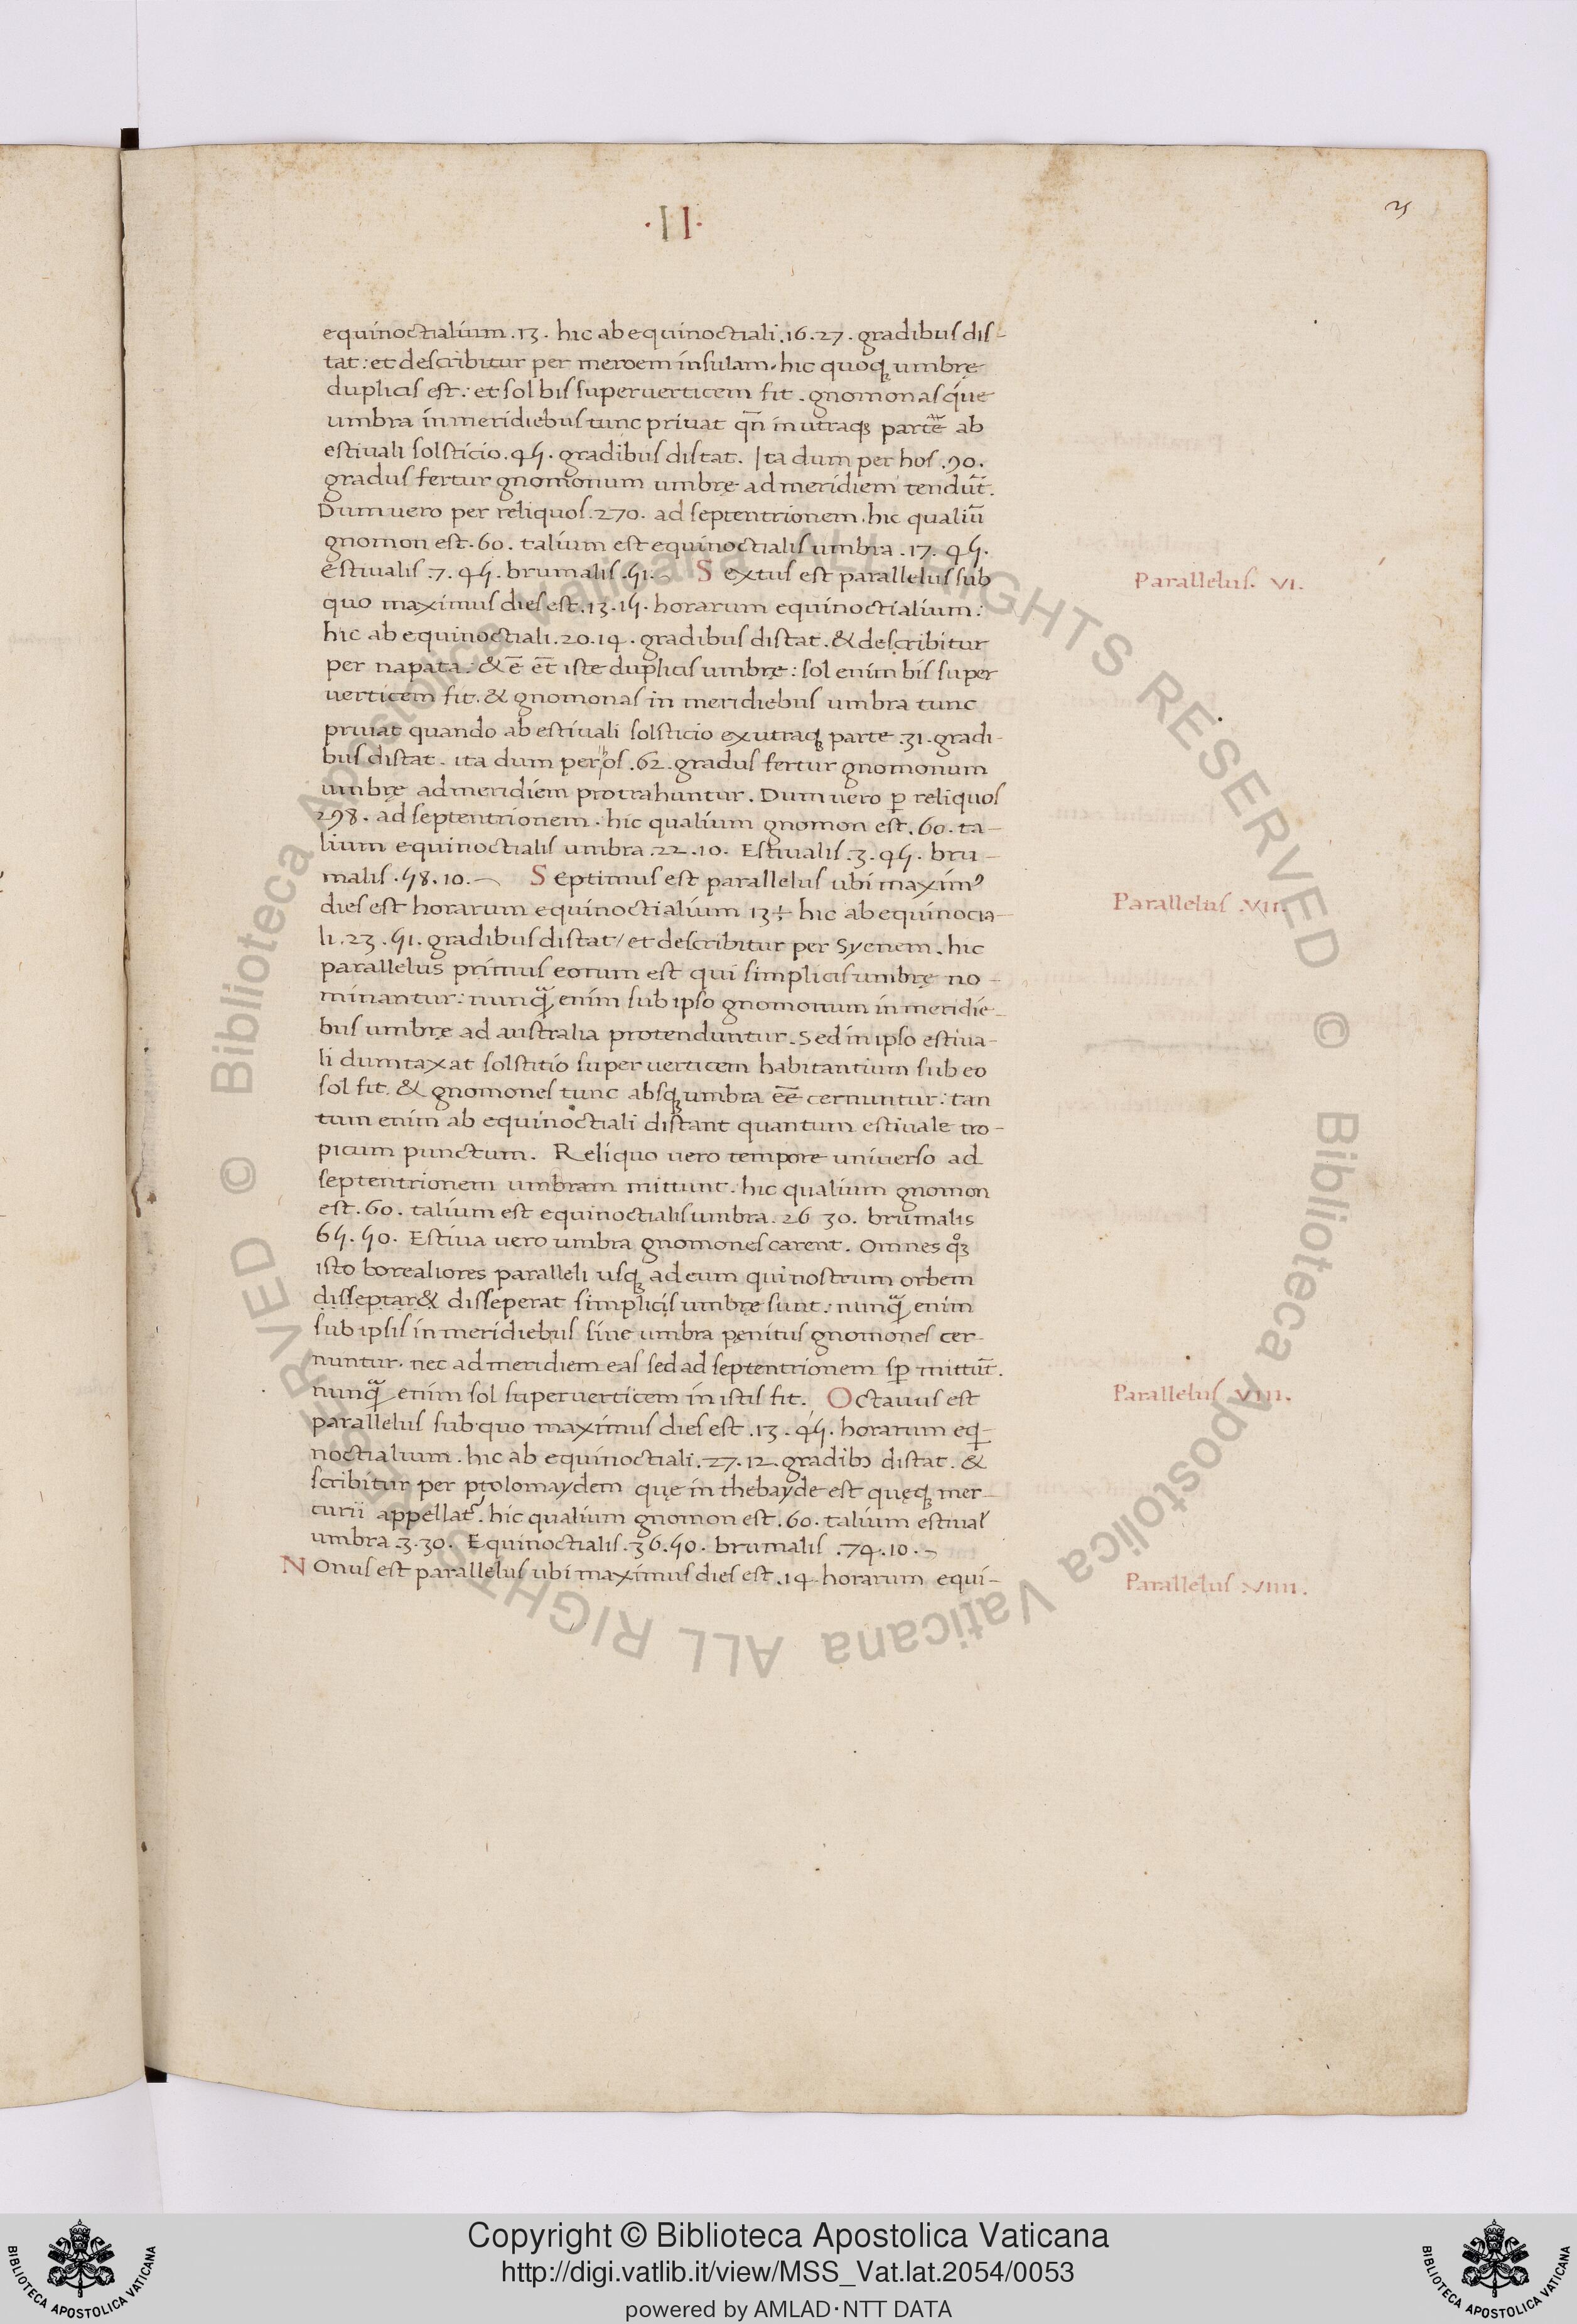 ·II·
25
equinoctialium .13. hic ab equinoctiali .16.27. gradibus dis-
tat: et describitur per meroem insulam. hic quoq; umbrę
duplicis est: et sol bis super verticem fit. gnomonasque
umbra in meridiebus tunc privat qn̄ in utraq; partē ab
estivali solsticio .45. gradibus distat. Ita dum per hos .90.
gradus fertur gnomonum umbrę ad meridiem tendūt.
Dum vero per reliquos .270. ad septentrionem. hic qualiū
gnomon est .60. talium est equinoctialis umbra .17.45.
Estivalis .7.45. brumalis .51. Sextus est parallelus sub
Parallelus. VI.
quo maximus dies est .13.15. horarum equinoctialium:
hic ab equinoctiali .20.14. gradibus distat. & describitur
per napata: & ē ēt iste duplicis umbrę: sol enim bis super
verticem fit. & gnomonas in meridiebus umbra tunc
privat quando ab estivali solsticio ex utraq; parte .31. gradi-
bus distat. ita dum per hos .62. gradus fertur gnomonum
umbrę ad meridiem protrahuntur. Dum vero ꝑ reliquos
298. ad septentrionem. hic qualium gnomon est .60. ta-
lium equinoctialis umbra .22.10. Estivalis .3.45. bru-
malis .58.10. Septimus est parallelus ubi maximꝰ
dies est horarum equinoctialium 13÷ hic ab equinoctia-
Parallelus .VII.
li .23.51. gradibus distat/ et describitur per Syenem. hic
parallelus primus eorum est qui simplicis umbrę no-
minantur: nunq̄ enim sub ipso gnomonum in meridie-
bus umbrę ad australia protenduntur. Sed in ipso estiva-
li dumtaxat solstitio super verticem habitantium sub eo
sol fit. & gnomones tunc absq; umbra eē cernuntur: tan
tum enim ab equinoctiali distant quantum estivale tro-
picum punctum. Reliquo vero tempore universo ad
septentrionem umbram mittunt. hic qualium gnomon
est .60. talium est equinoctialis umbra .26 30. brumalis
65.50. Estiva vero umbra gnomones carent. Omnes qͦꝫ
isto borealiores paralleli usq; ad eum qui nostrum orbem
disseptar& disseperat simplicis umbrę sunt: nunq̄ enim
sub ipsis in meridiebus sine umbra penitus gnomones cer-
nuntur. nec ad meridiem eas sed ad septentrionem sꝑ mittūt.
nunq̄ enim sol super verticem in istis fit. Octavus est
Parallelus VIII.
parallelus sub quo maximus dies est .13.45. horarum eq̄-
noctialium. hic ab equinoctiali .27.12. gradibꝰ distat. &
scribitur per ptolomaydem quę in thebayde est quęq; mer-
curii appellat᷑. hic qualium gnomon est .60. talium estival̵
umbra .3.30. Equinoctialis .36.50. brumalis .74.10.
Nonus est parallelus ubi maximus dies est .14. horarum equi-
Parallelus VIIII.
Copyright © Biblioteca Apostolica Vaticana
http://digi.vatlib.it/view/MSS_Vat.lat.2054/0053
powered by AMLAD·NTT DATA
BIBLIOTECA APOSTOLICA VATICANA
BIBLIOTECA APOSTOLICA VATICANA
© Biblioteca Apostolica Vaticana ALL RIGHTS RESERVED © Biblioteca Apostolica Vaticana ALL RIGHTS RESERVED